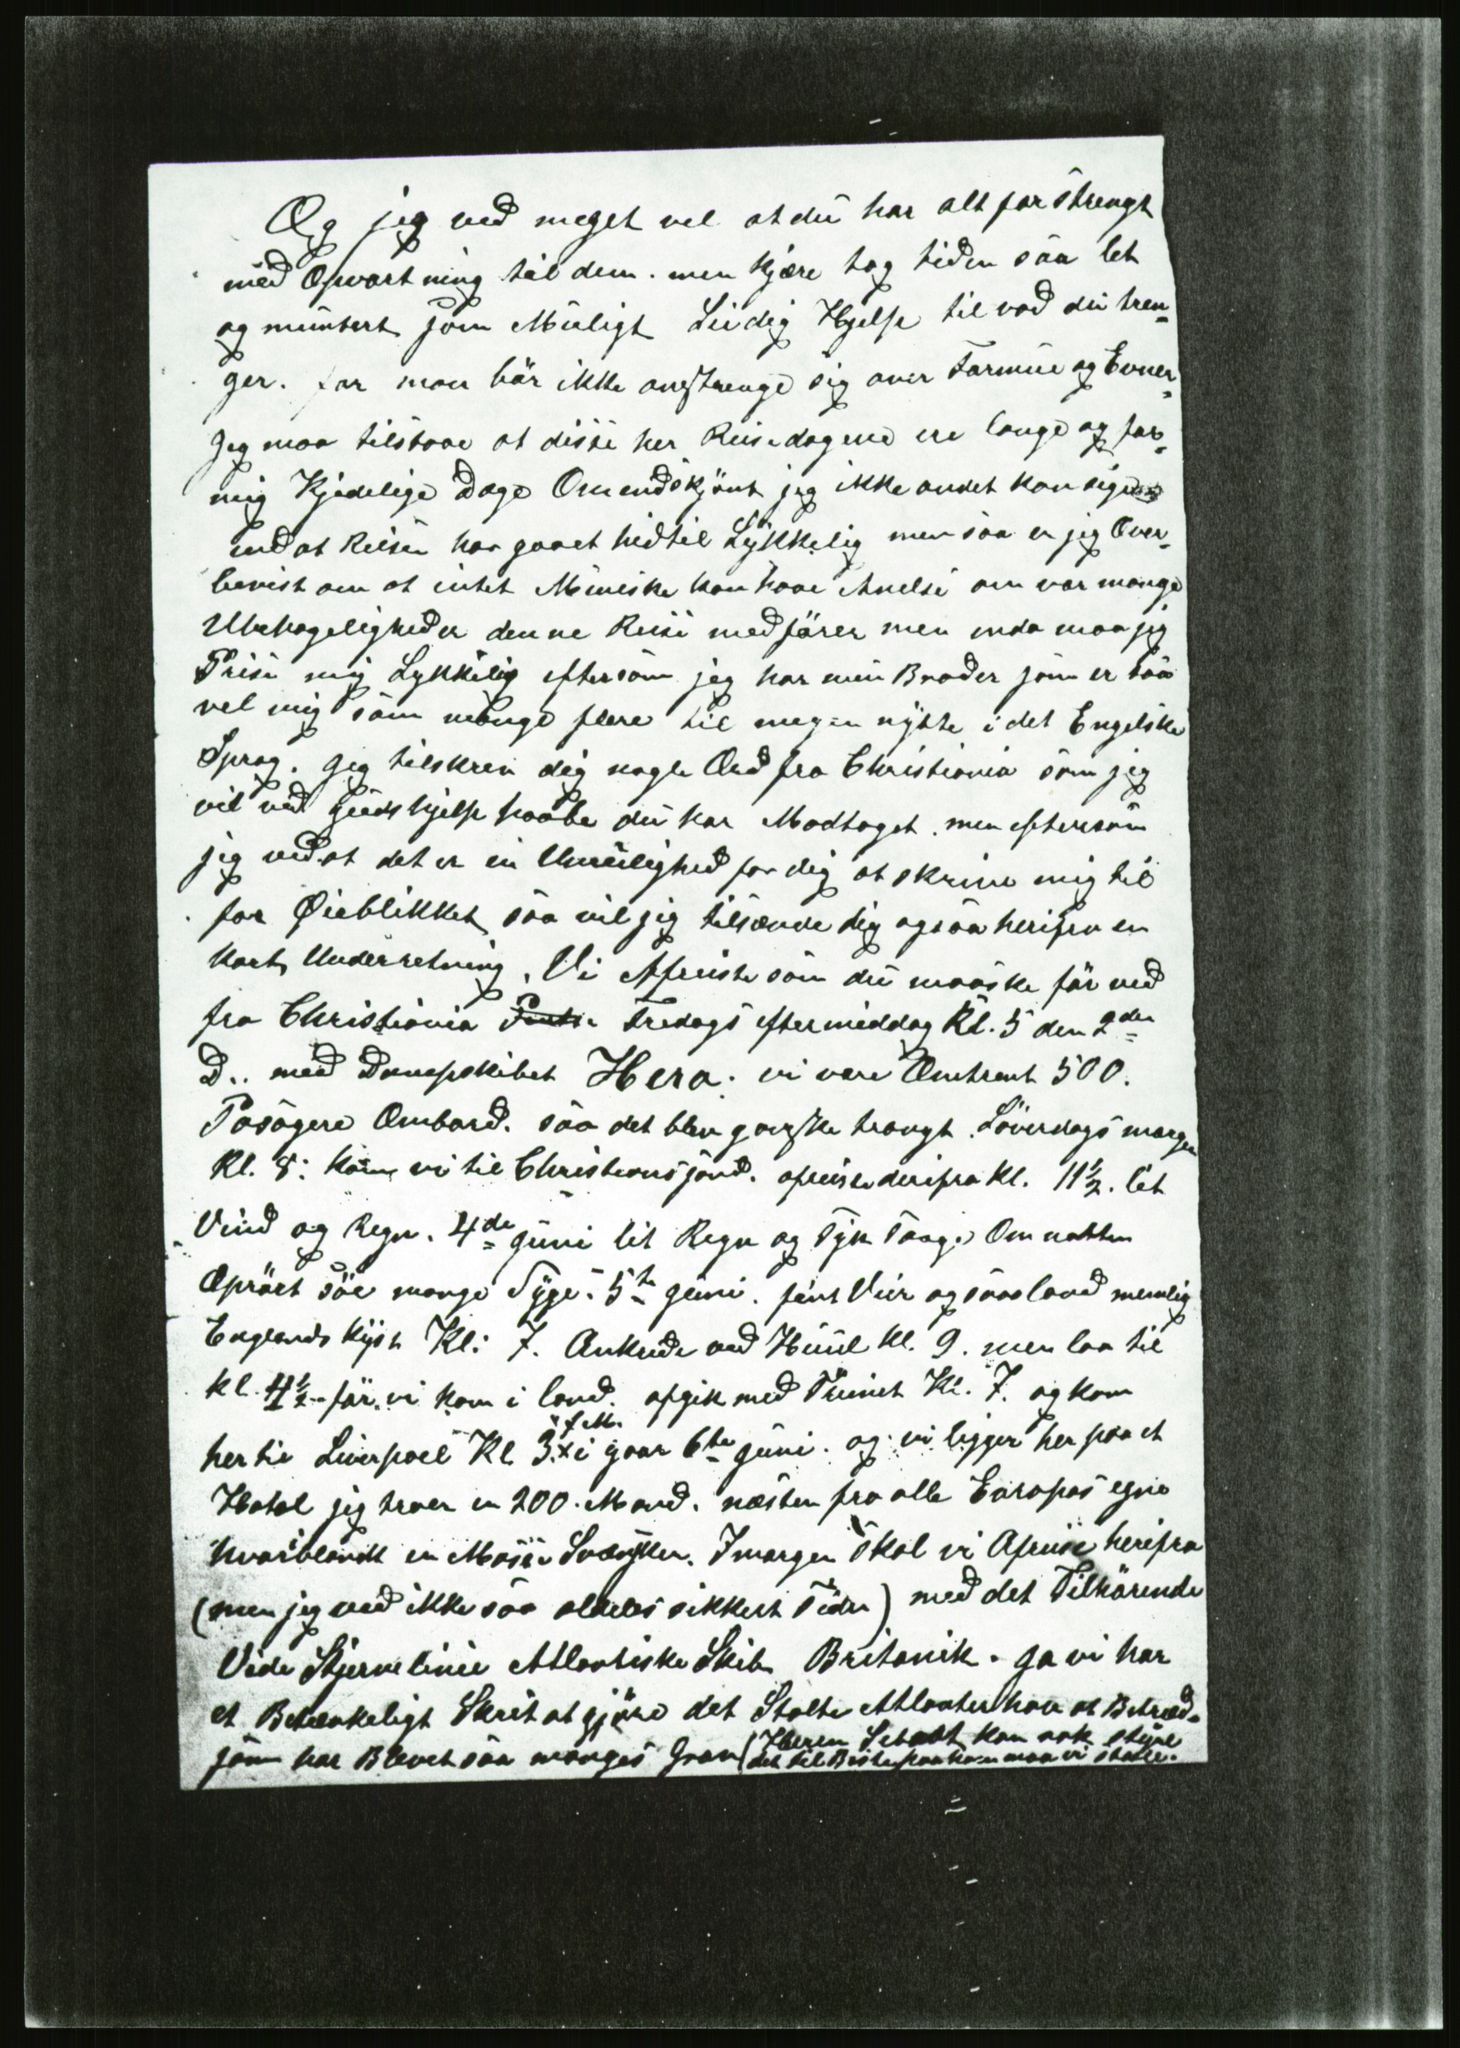 Og jeg ved meget vel at du har alt for strengt
med Opvartning til dem. men kjære tag tiden saa let
og muntert som Muligt Lei dig Hjelp til vad du tren-
ger. for man bör ikke anstrenge sig over Formue og Evner-
Jeg maa tilstaae at disse her Reisedagene ere lange og for-
mig Kjedelige Dage Omendskjönt jeg ikke andet kan sige
end at Reisen har gaaet hidtil Lykkelig men saa er jeg Over-
bevist om at intet Meniske kan have Anelse om vor mange
Ubehageligheder denne Reise medförer men enda maa jeg
Prise mig Lykkelig eftersom jeg har min Broder som er saa
vel mig som mange flere til megen nytte i det Engelske
Sprog. Jeg tilskrev dig nogle Ord fra Christiania som jeg
vil ved Guds hjelp haabe du har Modtaget. men eftersom
jeg ved at det er en Umulighed for dig at skrive mig til
for Øieblikket saa vil jeg tilsænde dig ogsaa herifra en
kort Underretning. Vi Afreiste som du maaske för ved
fra Christiania Fredags eftermiddag Kl. 5 den 2den
D.. med Dampskibet Hero. vi vare Omtrent 500.
Pasagere Ombord. saa det blev ganske trangt. Löverdags morgen
Kl. 8: kom vi til Christiansand. afreiste derifra Kl. 11½. lit
Vind og Regn. 4de Juni lit Regn og Tyk Taage Om natten
Oprört söe mange Syge. 5te Juni. fint Veir og saae land nemlig
Englands kyst Kl: 7. Ankrede ved Hull kl. 9. men laa til
kl. 4½ för vi kom i land. afgik med Trinet Kl. 7. og kom
her til Liverpool Kl 3. x f.M. i gaar 6te Juni. og vi ligger her paa et
Hotel jeg troer en 200. Mand. næsten fra alle Europas egne
hvoriblandt en Masse Svensker. Imorgen skal vi Afreise herifra
(men jeg ved ikke saa aldeles sikkert Tiden) med det Tilhörende
Vide Stjerne linie Atlantiske Skib Britanik. Ja vi har
et Betænkeligt Skrit at gjöre det Stolte Atlanterhav at Betræd-
som har Blevet saa manges Grav (Herren Sebaot kan nok styre
det til Beste paa ham maa vi stole.